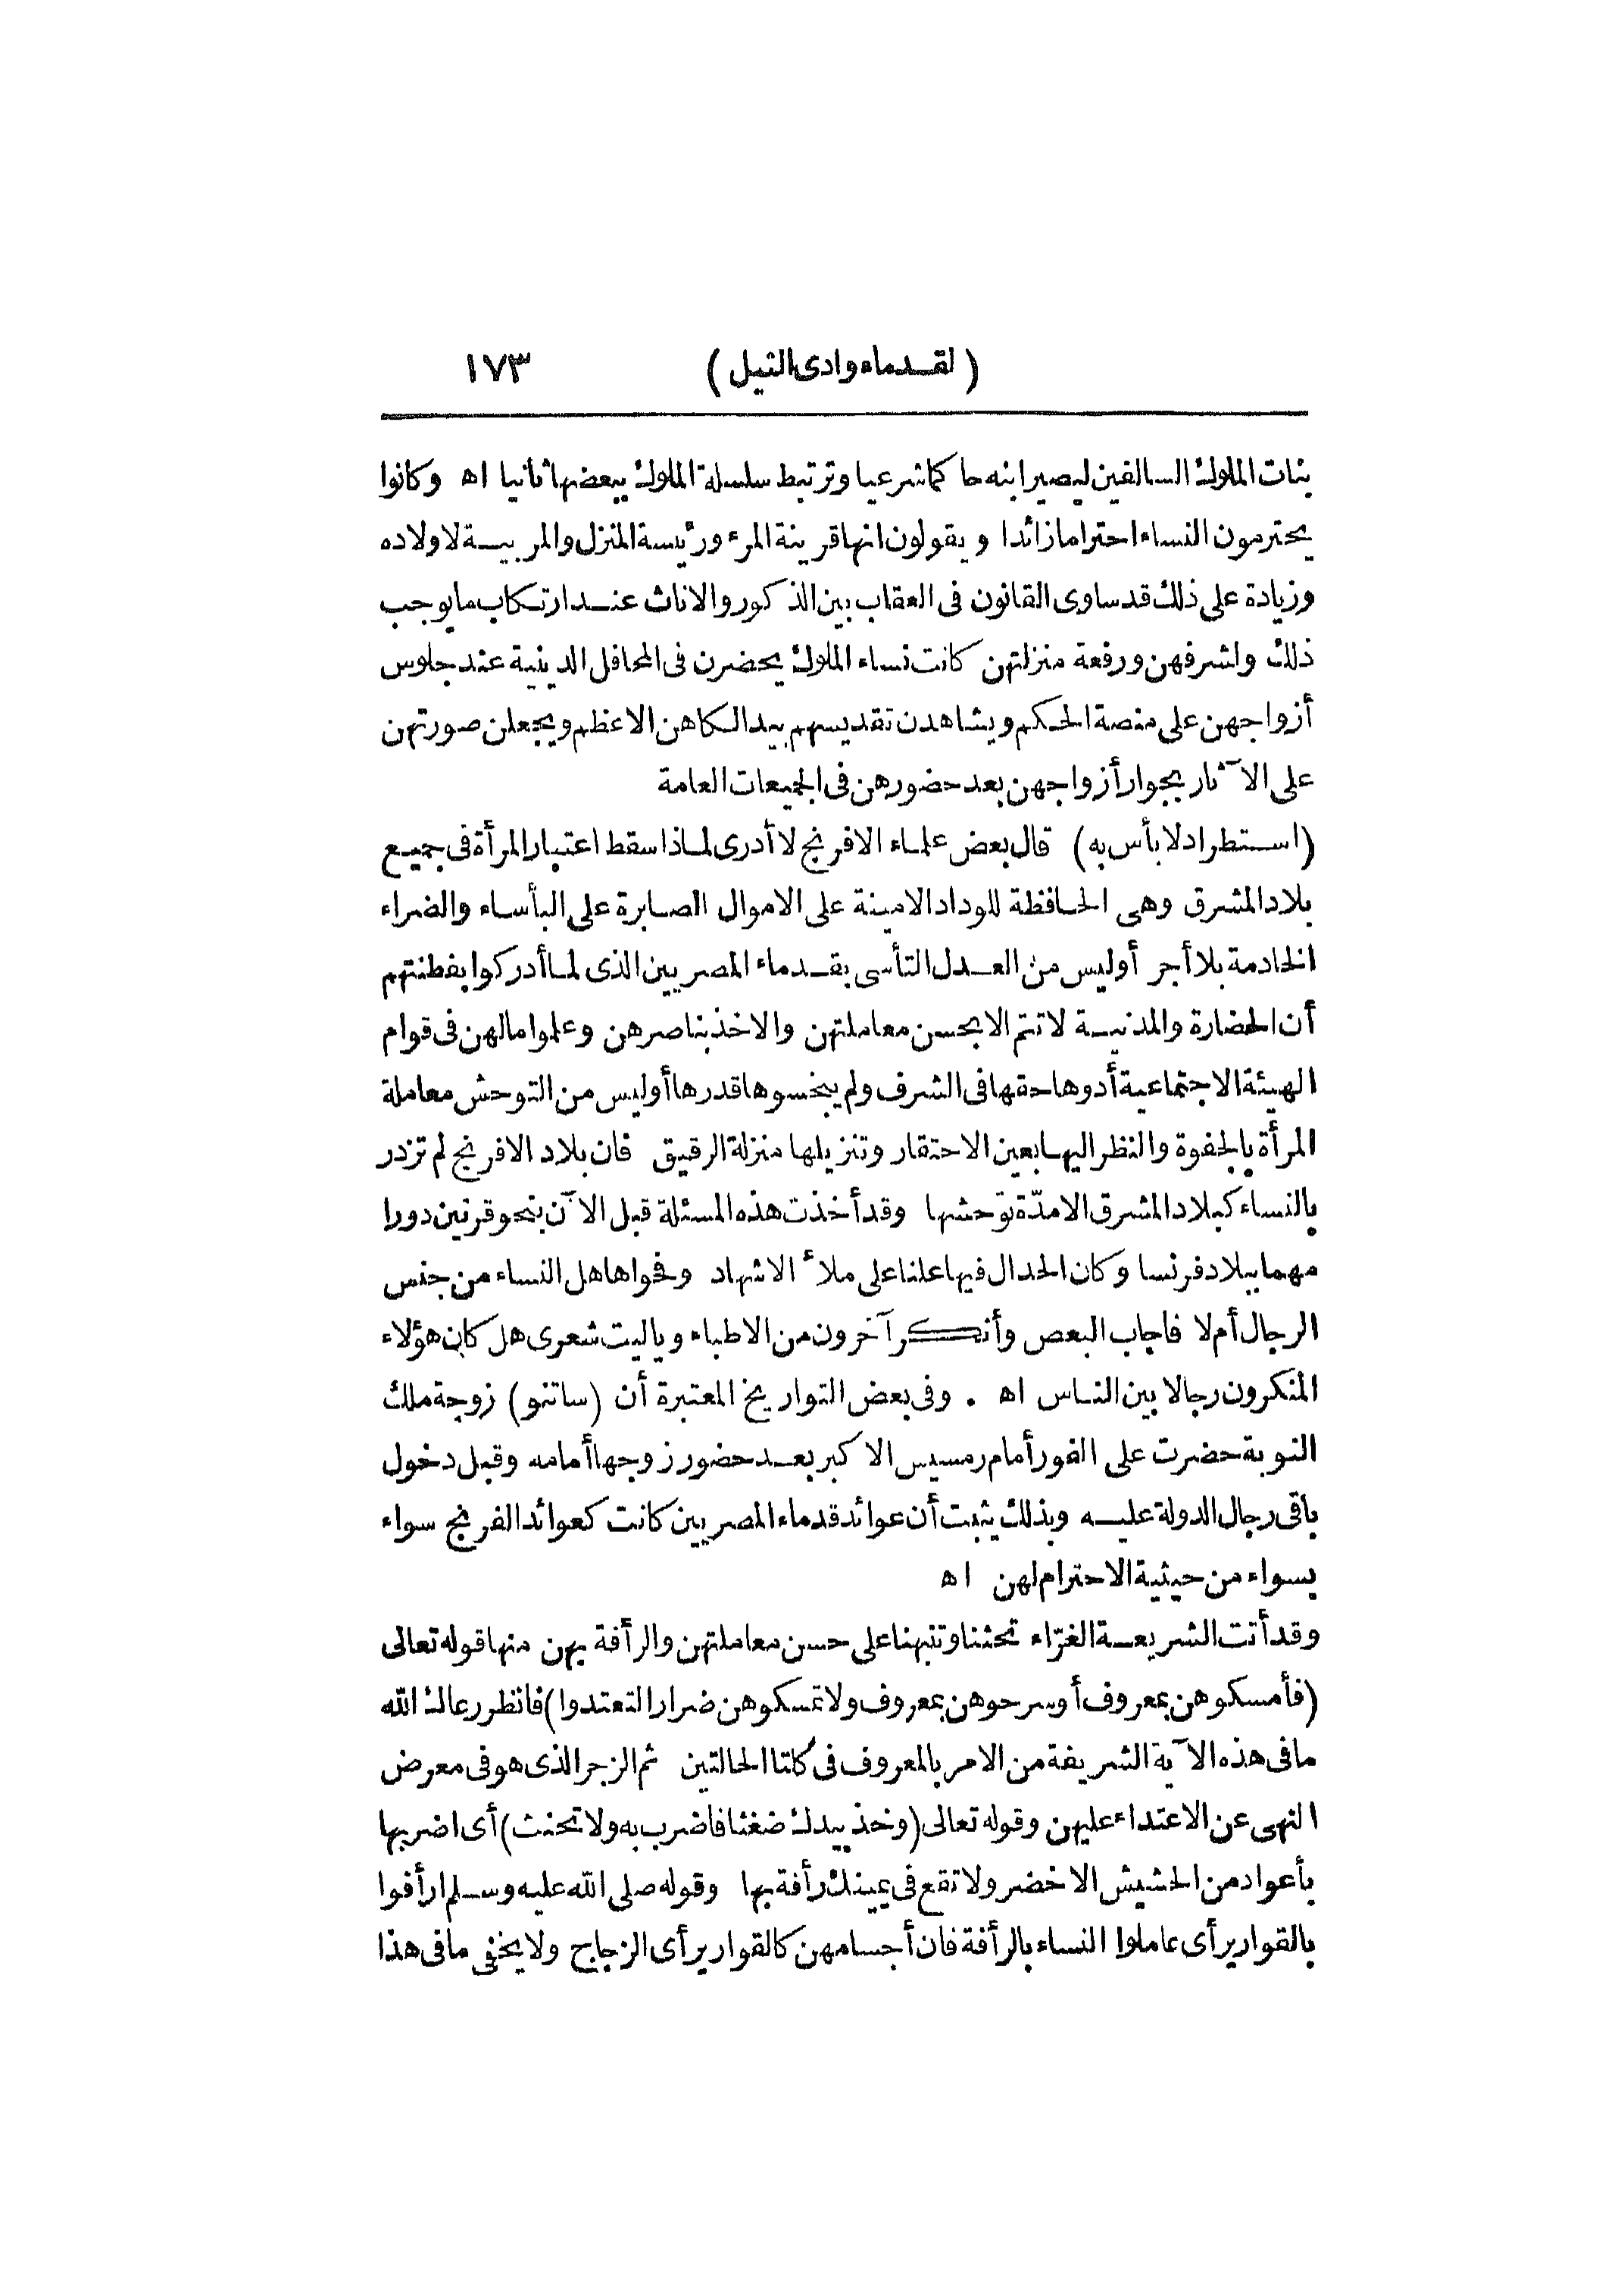 (لقدماء وادى النيل) ١٧٣
بنات الملوك السالفين ليصير ابنه حاكما شرعيا وترتبط سلسلة الملوك ببعضها ثانيا اه وكانوا
يحترمون النساء احتراما زائدا ويقولون انها قرينة المرء ورئيسة المنزل والمربية لاولاده
وزيادة على ذلك قد ساوى القانون فى العقاب بين الذكور والاناث عند ارتكاب ما يوجب
ذلك ولشرفهن ورفعة منزلتهن كانت نساء الملوك يحضرن فى المحافل الدينية عند جلوس
أزواجهن على منصة الحكم ويشاهدن تقديسهم بيد الكاهن الاعظم ويجعلن صورتهن
على الآثار بجوار أزواجهن بعد حضورهن فى الجمعيات العامة
(استطراد لا بأس به) قال بعض علماء الافرنج لا أدرى لماذا سقط اعتبار المرأة فى جميع
بلاد المشرق وهى الحافظة للوداد الامينة على الاموال الصابرة على البأساء والضراء
الخادمة بلا أجر أوليس من العدل التأسى بقدماء المصريين الذى لما أدركوا بفطنتهم
أن الحضارة والمدنية لا تتم الا بحسن معاملتهن والاخذ بناصرهن وعلموا مالهن فى قوام
الهيئة الاجتماعية أدوها حقها فى الشرف ولم يبخسوها قدرها أوليس من التوحش معاملة
المرأة بالجفوة والنظر اليها بعين الاحتقار وتنزيلها منزلة الرقيق فان بلاد الافرنج لم تزدر
بالنساء كبلاد المشرق الا مدّة توحشها وقد أخذت هذه المسئلة قبل الآن بنحو قرنين دورا
مهما ببلاد فرنسا وكان الجدال فيها علنا على ملأ الاشهاد وفحواها هل النساء من جنس
الرجال أم لا فاجاب البعض وأنكر آخرون من الاطباء وياليت شعرى هل كان هؤلاء
المنكرون رجالا بين الناس اه . وفى بعض التواريخ المعتبرة أن (ساتنو) زوجة ملك
النوبة حضرت على الفور أمام رمسيس الاكبر بعد حضور زوجها أمامه وقبل دخول
باقى رجال الدولة عليه وبذلك يثبت أن عوائد قدماء المصريين كانت كعوائد الفرنج سواء
بسواء من حيثية الاحترام لهن اه
وقد أتت الشريعة الغرّاء تحثنا وتنبهنا على حسن معاملتهن والرأفة بهن منها قوله تعالى
(فأمسكوهن بمعروف أو سرحوهن بمعروف ولا تمسكوهن ضرارا لتعتدوا) فانظر رعاك الله
ما فى هذه الآية الشريفة من الامر بالمعروف فى كلتا الحالتين ثم الزجر الذى هو فى معرض
النهى عن الاعتداء عليهن وقوله تعالى (وخذ بيدك ضغثا فاضرب به ولا تحنث) أى اضربها
بأعواد من الحشيش الاخضر ولا تقع فى يمينك رأفة بها وقوله صلى الله عليه وسلم ارأفوا
بالقوارير أى عاملوا النساء بالرأفة فان أجسامهن كالقوارير أى الزجاج ولا يخفى ما فى هذا